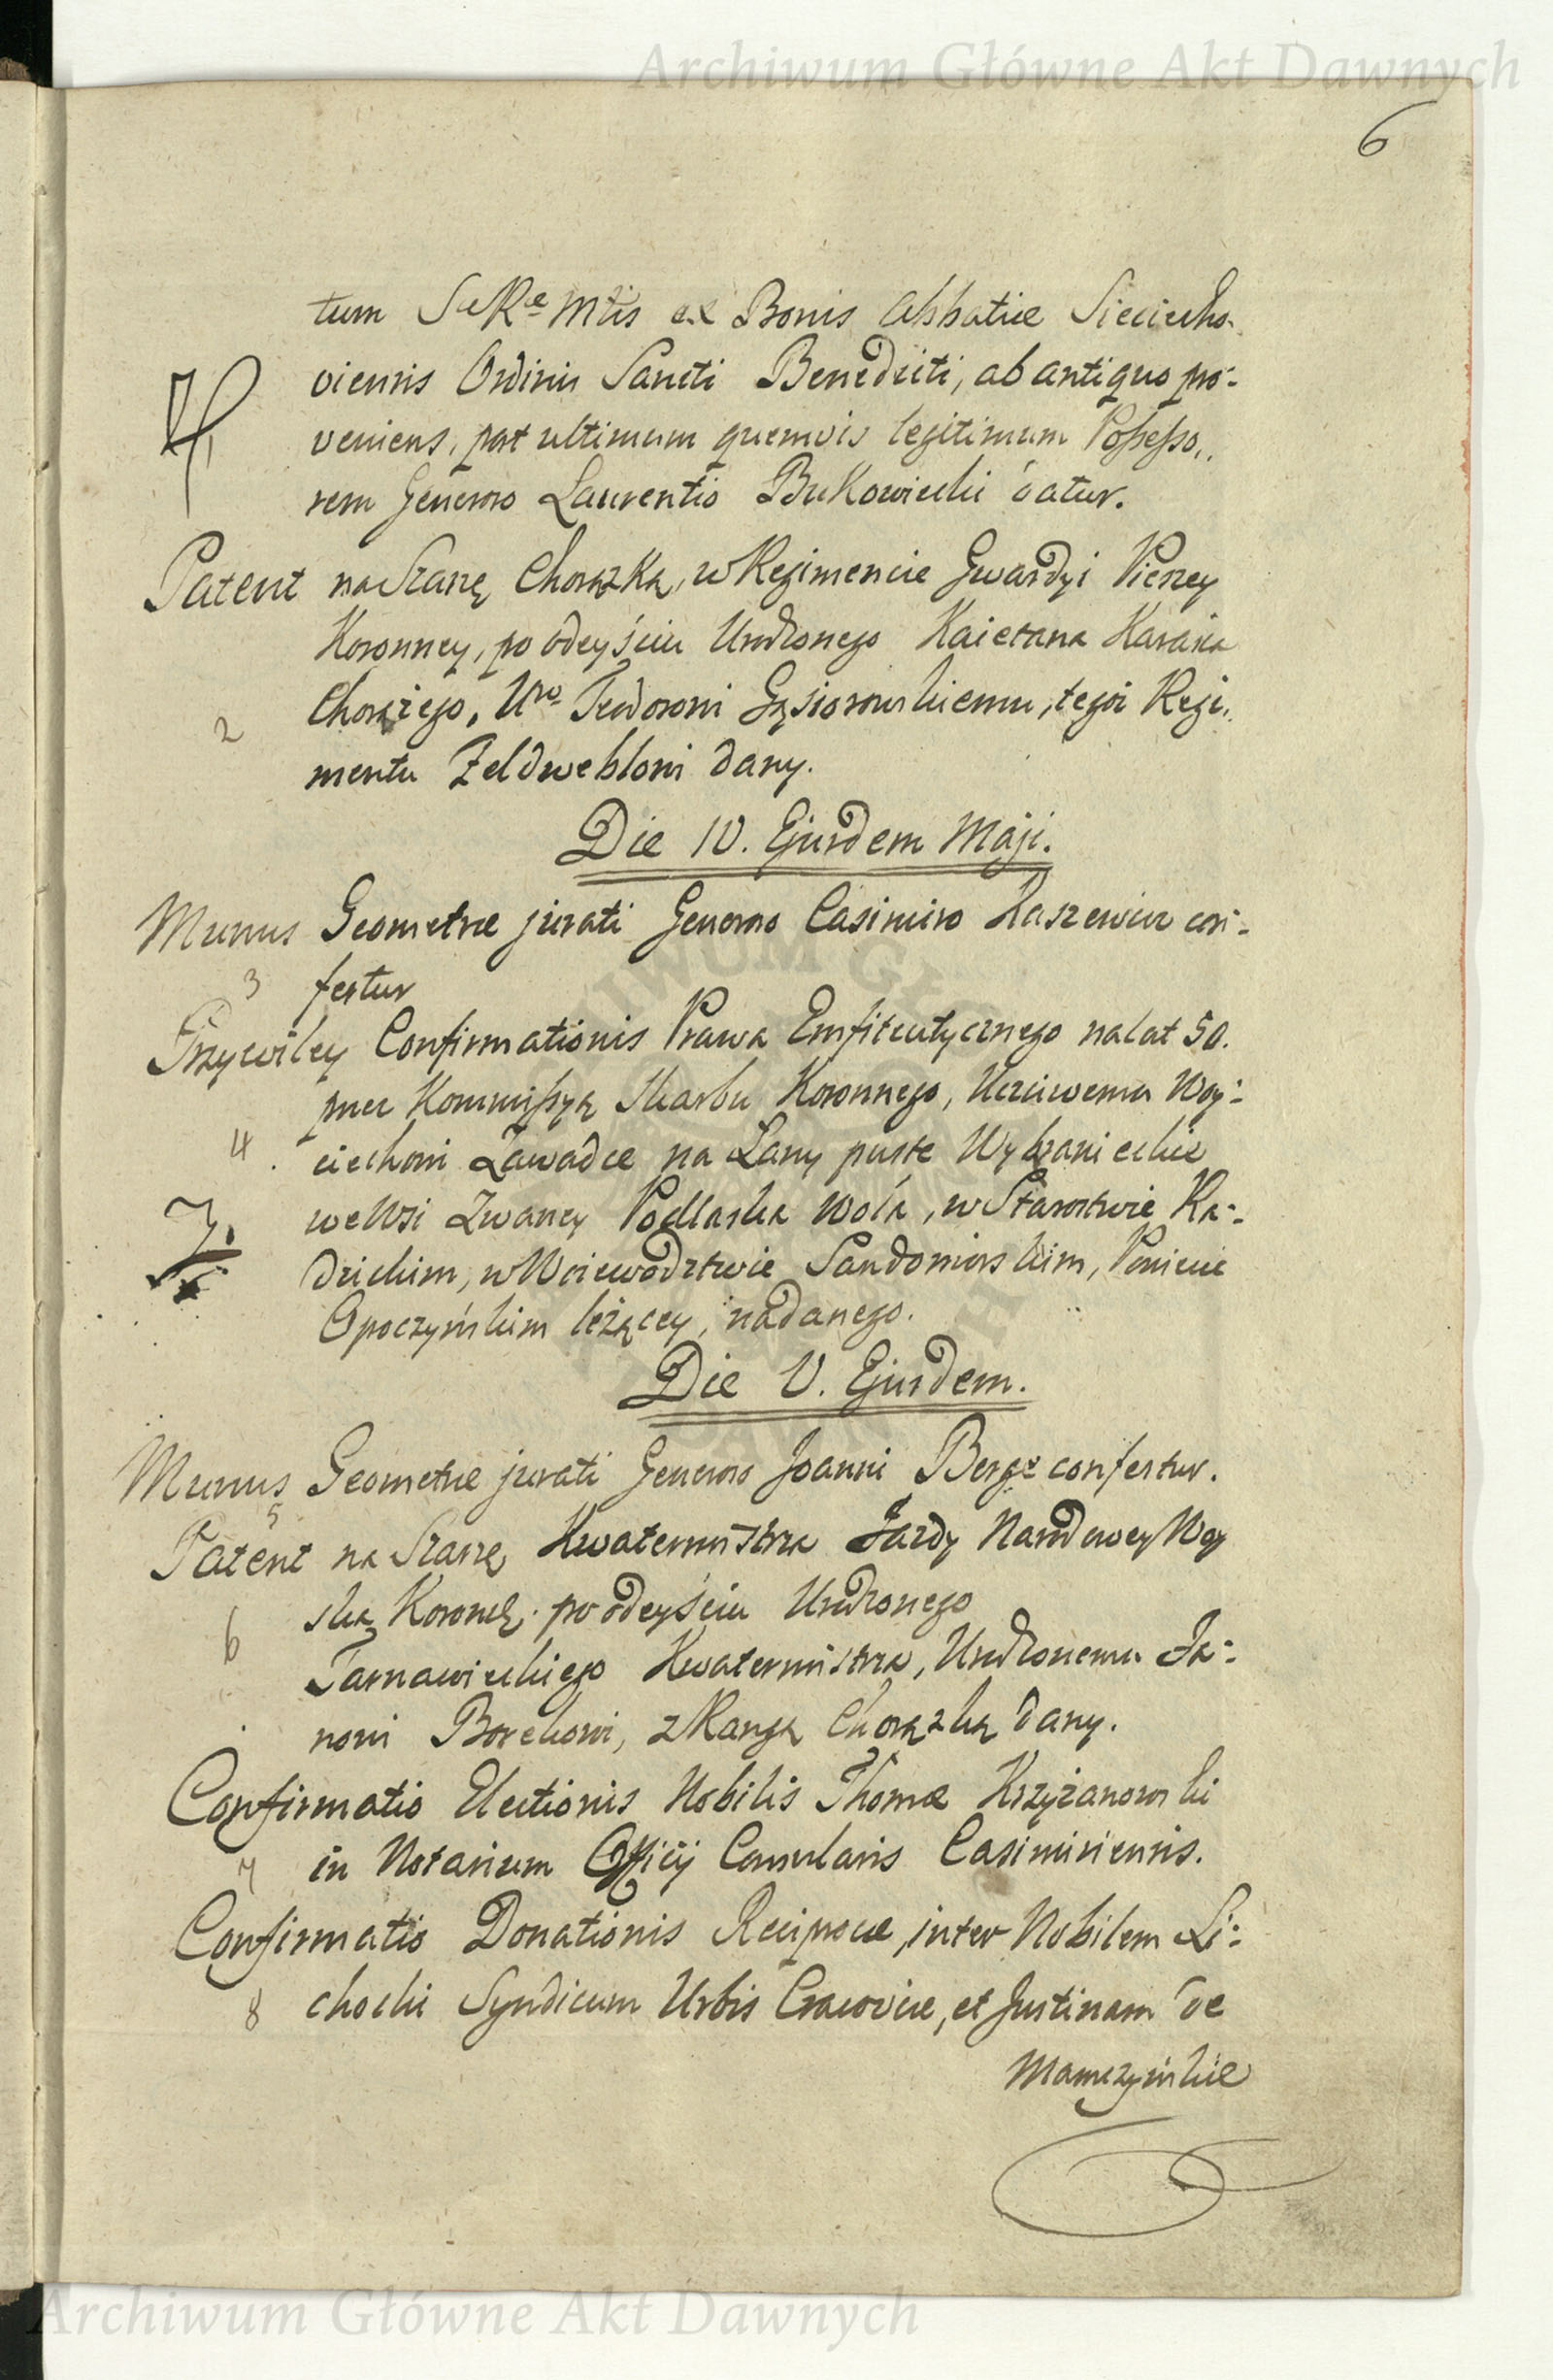 Archiwum Główne Akt Dawnych
6
tum S{ae} R{ae} Mtis ex Bonis Abbatiæ Sieciecho-
viensis Ordinis Sancti Benedicti, ab antiquo pro-
veniens, post ultimum quemvis legitimum Possesso,,
rem Generoso Laurentio Bukowiecki datur.
Patent na Szarżę Chorążką, w Regimencie Gwardyi Pieszey
Koronney, po odeyściu Urodzonego Kaietana
Chorążego, Uro Teodorowi Gąsiorowskiemu, tegoż Regi,,
2
mentu Feldweblowi dany.
Die IV. Ejusdem Maji.
Munus Geometræ jurati Generoso Casimiro Kaszewicz con-
3 fertur
Przywiley Confirmationis Prawa Emfiteutycznego na lat 50.
przez Kommissyą Skarbu Koronnego, Uczciwemu Woy-
4 ciechowi Zawadce na Łany puste Wybranieckie
we Wsi Zwaney Podlaska Wola, w Starostwie Ra-
7.
dzickim, w Woiewodztwie Sandomirskim, Powiecie
Opoczyńskim leżącey, nadanego.
Die V. Ejusdem.
Munus Geometræ jurati Generoso Joanni Berge confertur.
5
Patent na Szarżę Kwatermistrza Jazdy Narodowey Woy
6 ska Koronn: po odeyściu Urodzonego
Tarnawieckiego Kwatermistrza, Urodzonemu Ja-
nowi Borekowi, z Rangą Chorążką dany.
Confirmatio Electionis Nobilis Thomæ Krzyżanowski
7 in Notarium Officij Consularis Casimiriensis.
Confirmatio Donationis Reciprocæ, inter Nobilem Li-
8 chocki Syndicum Urbis Cracoviæ, et Justinam de
Mamczyńskie
Archiwum Główne Akt Dawnych